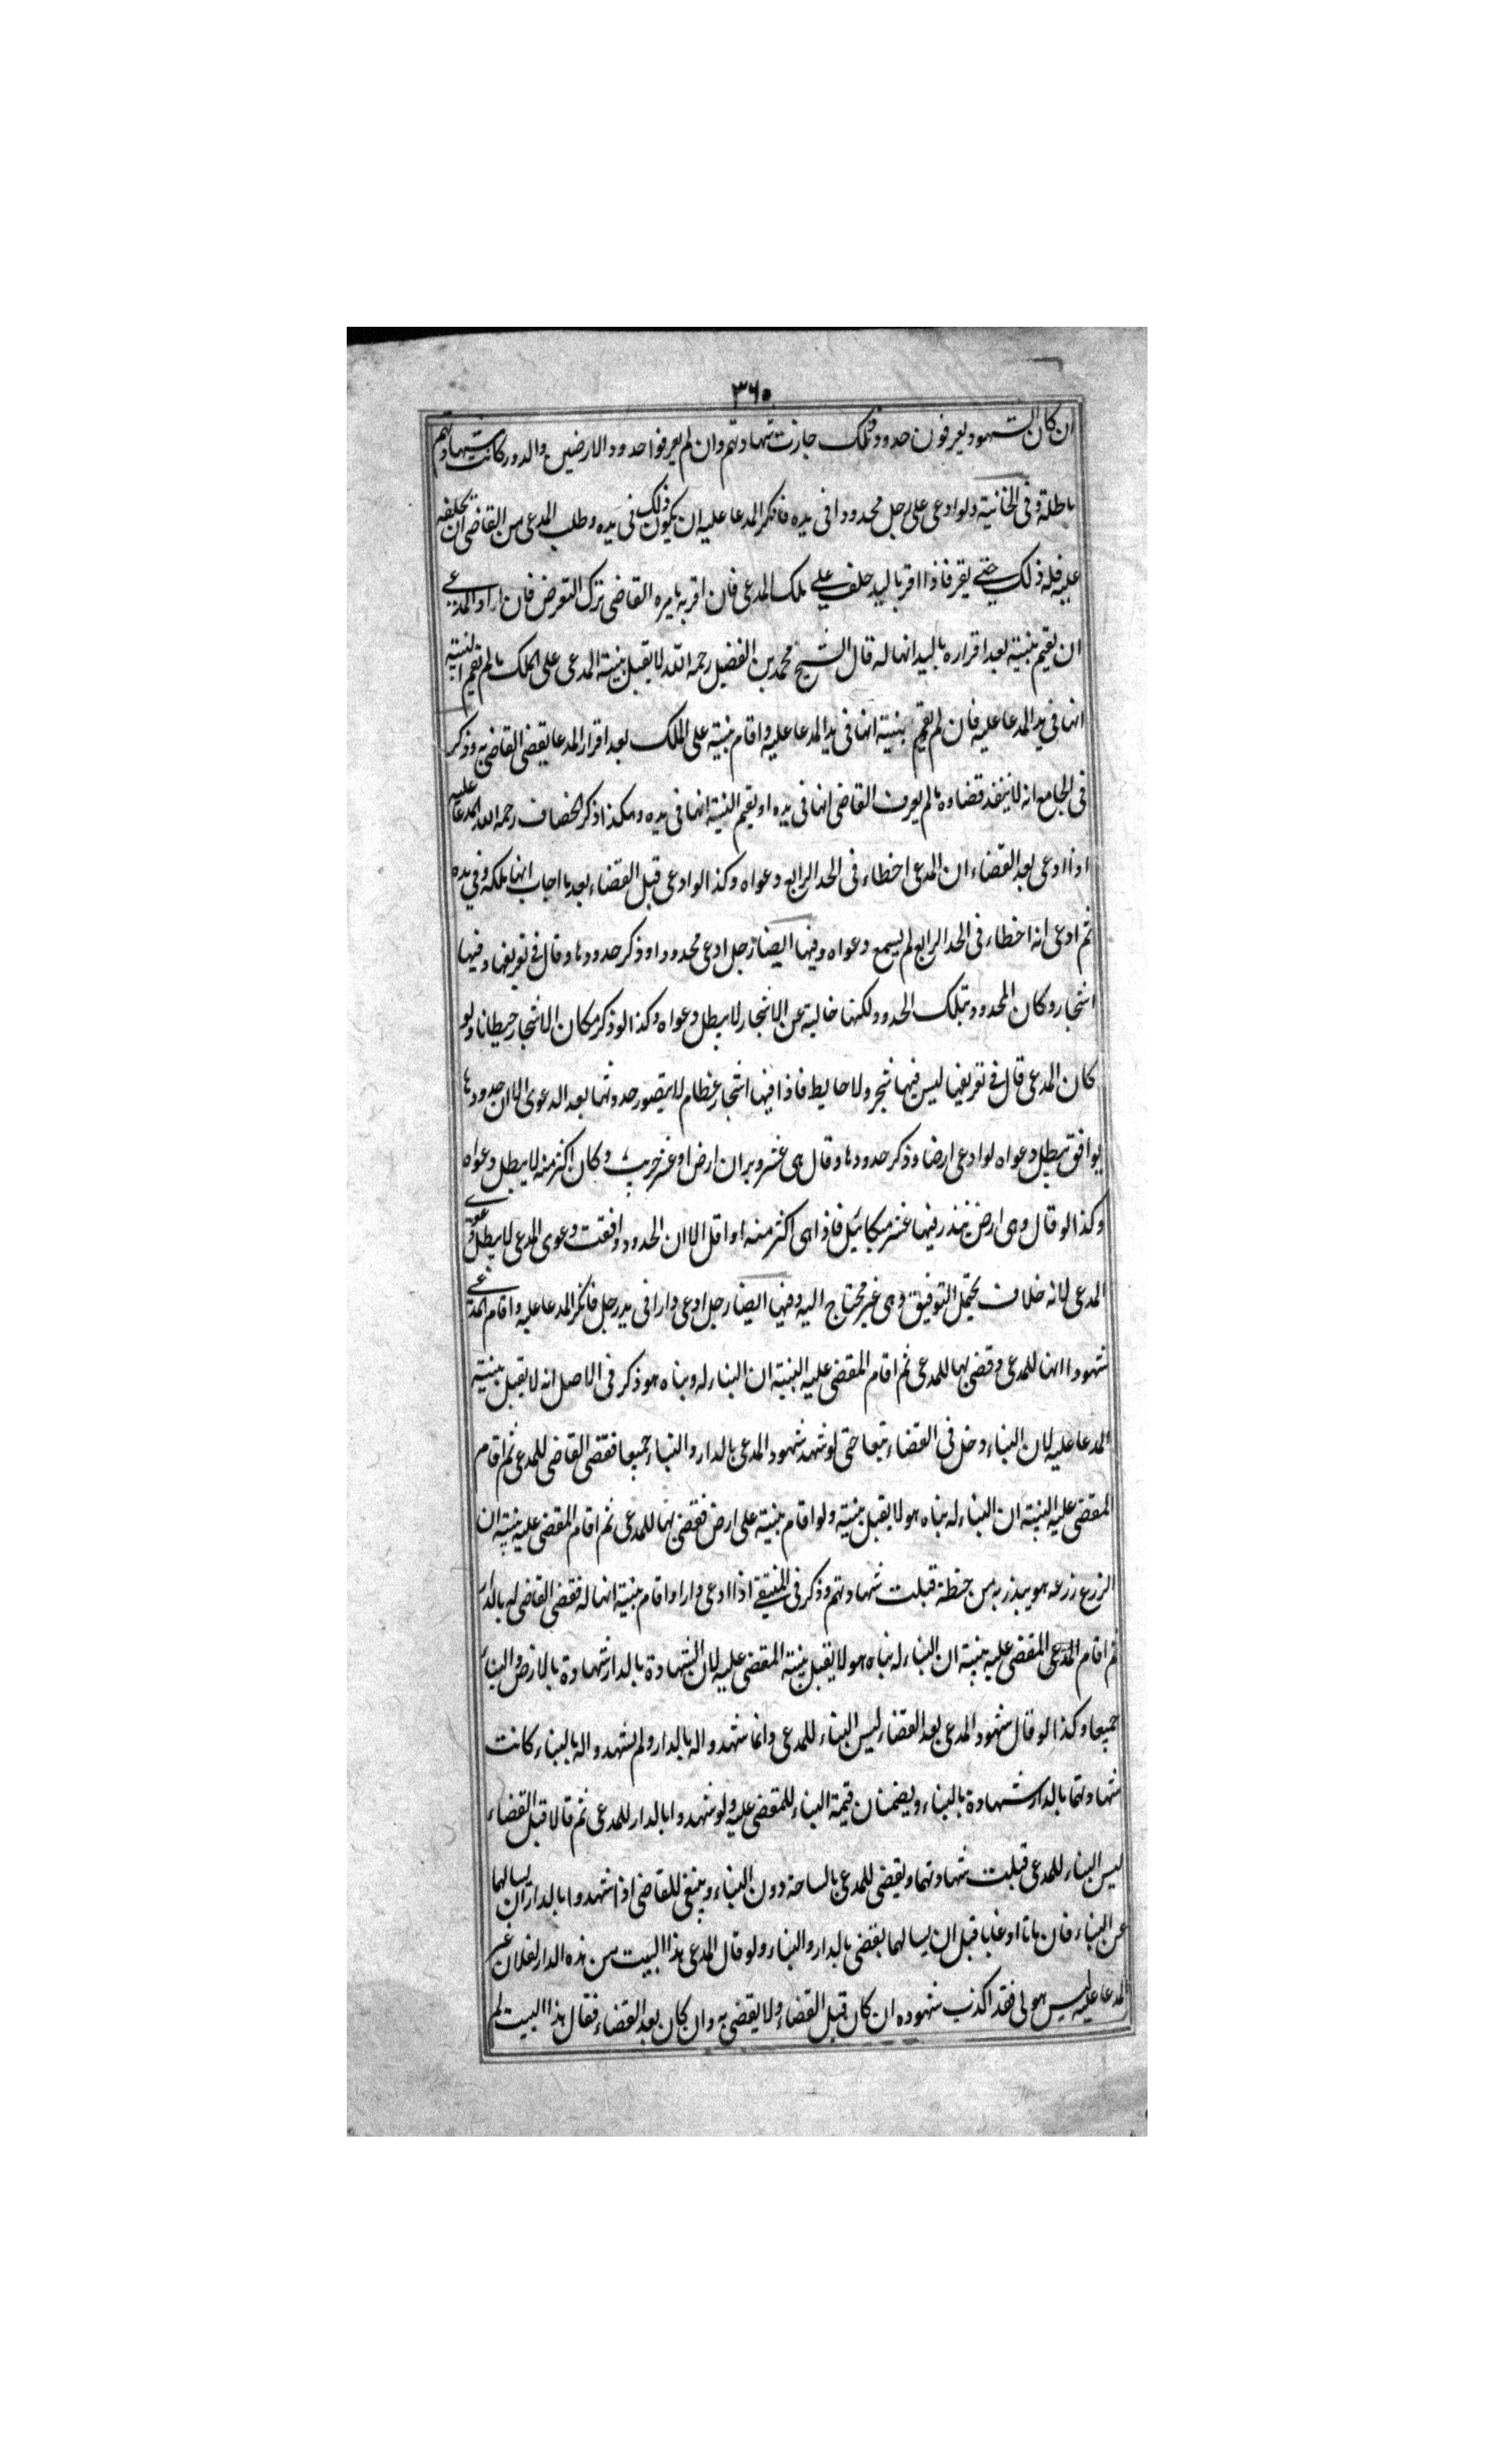 ٣٦٠
ان كان الشهود يعرفون حدود ذلك جازت شهادتهم وان لم يعرفوا حدود الارضين والدور كانت شهادتهم
باطلة وفى الخانية ولو ادعى على رجل محدودا فى يده فانكر المدعا عليه ان يكون ذلك فى يده وطلب المدعى من القاضى ان يحلفه
عليه فله ذلك حتى يقر فاذا اقر باليد حلف على ملك المدعى فان اقر به يامره القاضى بترك التعرض فان اراد المدعى
ان يقيم بينة بعد اقراره باليد انها له قال الشيخ محمد بن الفضيل رحمه الله لا يقبل بينة المدعى على الملك ما لم يقم البينة
انها فى يد المدعا عليه فان لم يقم بينة انها فى يد المدعا عليه واقام بينة على الملك بعد اقرار المدعا يقضى القاضى به وذكر
فى الجامع انه لا ينفذ قضاوه ما لم يعرف القاضى انها فى يده او يقيم البينة انها فى يده وهكذا ذكر الخصاف رحمه الله المدعا عليه
اذا ادعى بعد القضاء ان المدعى اخطاء فى الحد الرابع دعواه وكذا لو ادعى قبل القضاء بعد ما اجاب انها ملكه وفى يده
ثم ادعى انه اخطاء فى الحد الرابع لم يسمع دعواه وفيها ايضا رجل ادعى محدودا وذكر حدودها وقال فى تعريفها وفيها
اشجار وكان المحدود بتلك الحدود لكنها خالية عن الاشجار لا يبطل دعواه وكذا لو ذكر مكان الاشجار حيطانا ولو
كان المدعى قال فى تعريفها ليس فيها شجر ولا حايط فاذا فيها اشجار عظام لا يتصور حدوثها بعد الدعوى الا ان حدودها
يوافق يبطل دعواه لو ادعى ارضا وذكر حدودها وقال هى عشر وبران ارض او عشر جريب وكان اكثر منه لا يبطل دعواه
وكذا لو قال وهى ارض يبذر فيها عشر مكائيل فاذا هى اكثر منه او اقل الا ان الحدود وافقت دعوى المدعى لا يبطل دعوى
المدعى لانه خلاف يحتمل التوفيق وهى غير محتاج اليه وفيها ايضا رجل ادعى دارا فى يد رجل فانكر المدعا عليه واقام المدعى
شهودا انها للمدعى وقضى بها للمدعى ثم اقام المقضى عليه البينة ان البناء له وبناه هو ذكر فى الاصل انه لا يقبل بينة
المدعا عليه لان البناء دخل فى القضاء تبعا حتى لو شهد شهود المدعى بالدار والبناء جميعا فقضى القاضى للمدعى ثم اقام
المقضى عليه البينة ان البناء له بناه هو لا يقبل بينة ولو اقام بينة على ارض فقضى بها للمدعى ثم اقام المقضى عليه بينة ان
الزرع زرعه هو ببذر به من حنطة قبلت شهادتهم وذكر فى المنتقى اذا ادعى دارا واقام بينة انها له فقضى القاضى له بالدار
ثم اقام المدعى المقضى عليه بينة ان البناء له بناه هو لا يقبل بينة المقضى عليه لان الشهادة بالدار شهادة بالارض والبناء
جميعا وكذا لو قال شهود المدعى بعد القضاء ليس البناء للمدعى وانما شهدوا له بالدار ولم يشهدوا له بالبناء كانت
شهادتهما بالدار شهادة بالبناء ويضمنان قيمة البناء للمقضى عليه ولو شهدوا بالدار للمدعى ثم قالا قبل القضاء
ليس البناء للمدعى قبلت شهادتهما ويقضى للمدعى بالساحة دون البناء وينبغى للقاضى اذا شهدوا بالدار ان يسالهما
عن البناء فان ماتا او غابا قبل ان يسالهما يقضى بالدار والبناء ولو قال المدعى هذا البيت من هذه الدار لفلان غير
المدعا عليه ليس هو لى فقد اكذب شهوده ان كان قبل القضاء ولا يقضى به وان كان بعد القضاء فقال هذا البيت لم